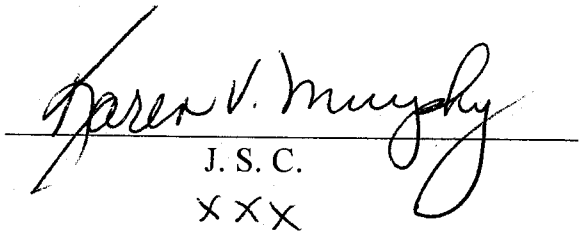 Karen V. Murphy
J. S. C.
XXX